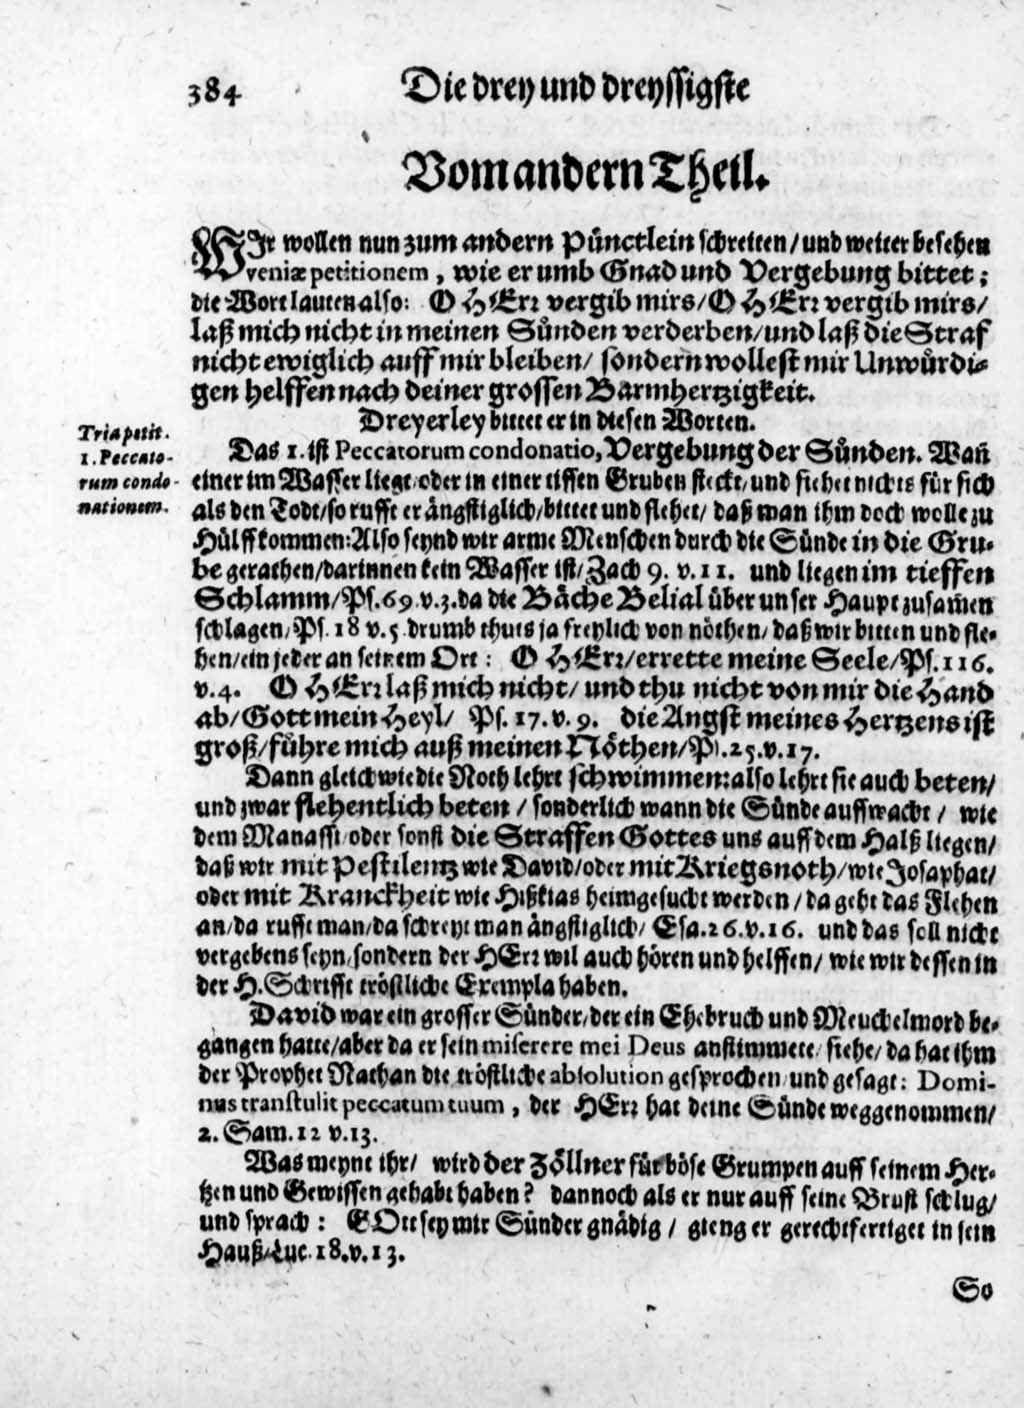 384 Die drey und dreyssigste
Vom andern Theil.
WIr wollen nun zum andern Pünctlein schreiten / und weiter besehen
veniæ petitionem, wie er umb Gnad und Vergebung bittet;
die Wort lauten also: O HErr vergib mirs/ O HErr vergib mirs/
laß mich nicht in meinen Sünden verderben/ und laß die Straf
nicht ewiglich auff mir bleiben/ sondern wollest mir Unwürdi-
gen helffen nach deiner grossen Barmhertzigkeit.
Dreyerley bittet er in diesen Worten.
Tria petit.
1. Peccato-
rum condo-
nationem.
Das 1. ist Peccatorum condonatio, Vergebung der Sünden. Wañ
einer im Wasser liegt/ oder in einer tiffen Gruben steckt/ und siehet nichts für sich
als den Todt/ so rufft er ängstiglich/ bittet und flehet/ daß man ihm doch wolle zu
Hülff kommen: Also seynd wir arme Menschen durch die Sünde in die Gru-
be gerathen/ darinnen kein Wasser ist/ Zach 9. v. 11. und liegen im tieffen
Schlamm/ Ps. 69. v. 3. da die Bäche Belial über unser Haupt zusam̃en
schlagen/ Ps. 18 v. 5. drumb thuts ja freylich von nöthen/ daß wir bitten und fle-
hen/ ein jeder an seinem Ort: O HErr/ errette meine Seele/ Ps. 116.
v. 4. O HErr laß mich nicht/ und thu nicht von mir die Hand
ab/ Gott mein Heyl/ Ps. 17. v. 9. die Angst meines Hertzens ist
groß/ führe mich auß meinen Nöthen/ Ps. 25. v. 17.
Dann gleich wie die Noth lehrt schwimmen: also lehrt sie auch beten/
und zwar flehentlich beten / sonderlich wann die Sünde auffwacht / wie
dem Manassi/ oder sonst die Straffen Gottes uns auff dem Halß liegen/
daß wir mit Pestilentz wie David/ oder mit Kriegsnoth/ wie Josaphat/
oder mit Kranckheit wie Hißkias heimgesucht werden / da geht das Flehen
an/ da rufft man/ da schreyt man ängstiglich/ Esa. 26. v. 16. und das soll nicht
vergebens seyn/ sondern der HErr wil auch hören und helffen/ wie wir dessen in
der H. Schrifft tröstliche Exempla haben.
David war ein grosser Sünder/ der ein Ehebruch und Meuchelmord be-
gangen hatte/ aber da er sein miserere mei Deus anstimmete/ siehe/ da hat ihm
der Prophet Nathan die tröstliche absolution gesprochen/ und gesagt: Domi-
nus transtulit peccatum tuum, der HErr hat deine Sünde weggenommen/
2. Sam. 12 v. 13.
Was meynt ihr/ wird der Zöllner für böse Grumpen auff seinem Her-
tzen und Gewissen gehabt haben? dannoch als er nur auff seine Brust schlug/
und sprach: GOtt sey mir Sünder gnädig / gieng er gerechtfertiget in sein
Hauß/ Luc. 18. v. 13.
So